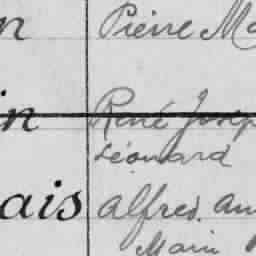 n Pierre Ma
in René Josep
Léonard
ais Alfred. Au
Marie